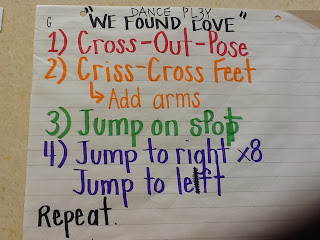 DANCE PL3Y
G
"WE FOUND LOVE"
1) Cross-Out-Pose
2) Criss-Cross Feet
↳ Add arms
3) Jump on spot
4) Jump to right x8
Jump to left
Repeat.